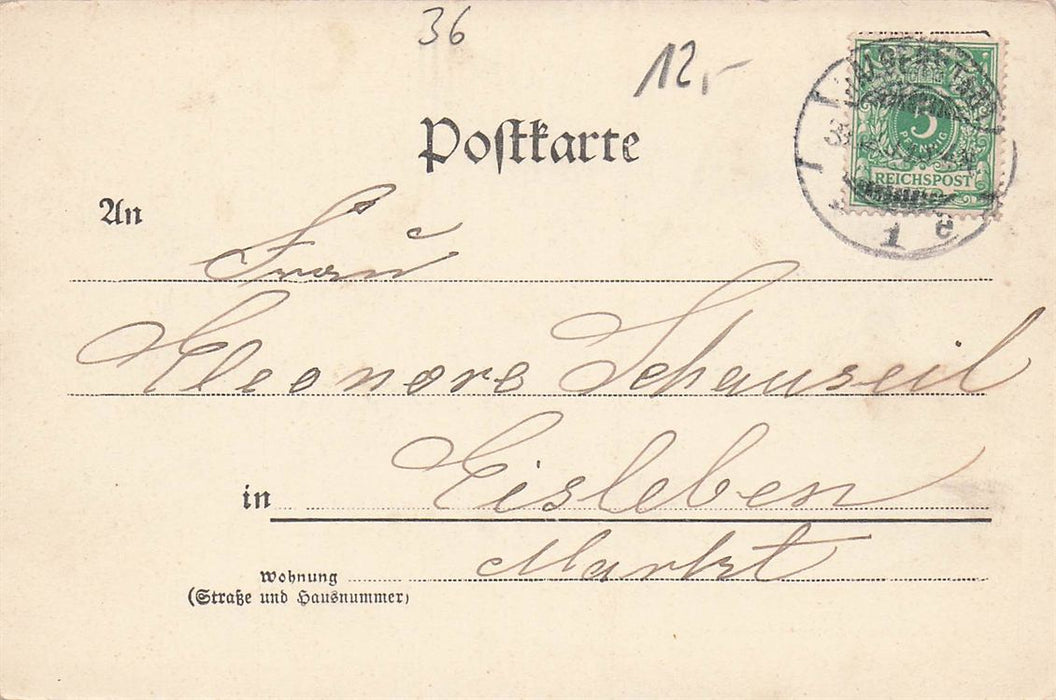 36
12,-
5
PFENNIG
REICHSPOST
1 c
Postkarte
An
Frau
Eleonore Schauseil
in Eisleben
Markt
Wohnung
(Straße und Hausnummer)